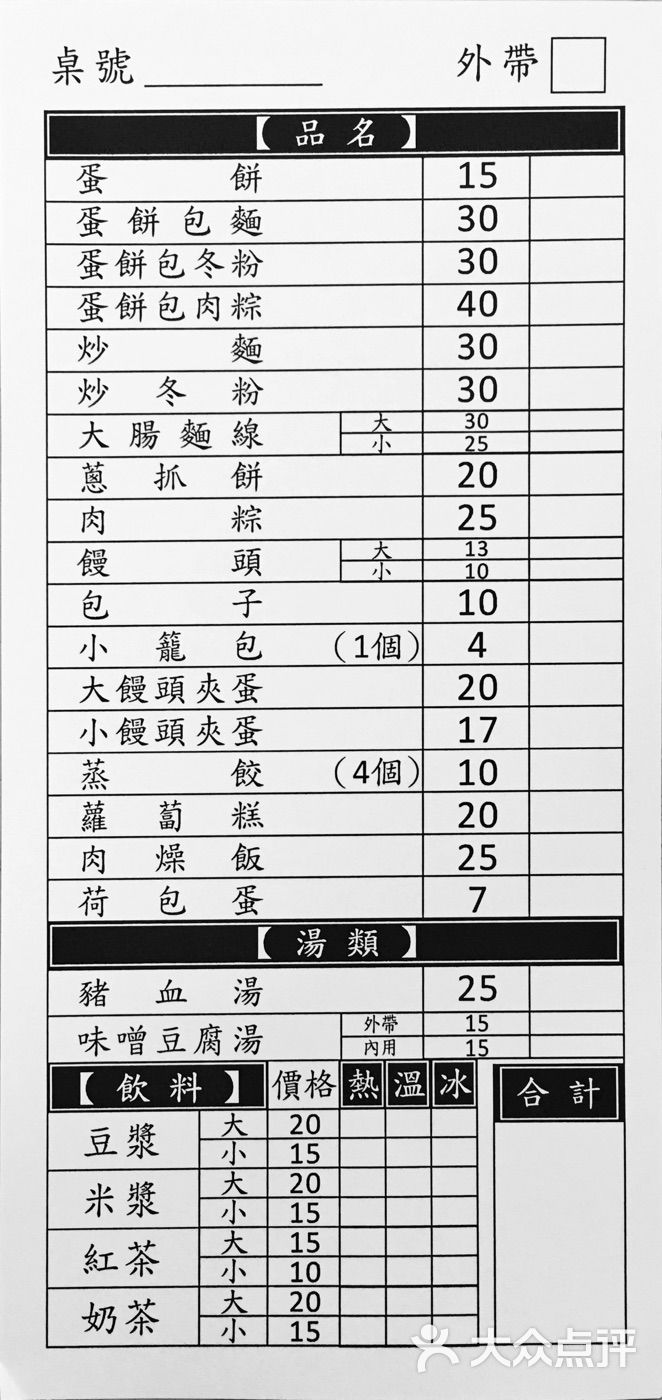 桌號 外帶
【品名】
蛋餅 15
蛋餅包麵 30
蛋餅包冬粉 30
蛋餅包肉粽 40
炒麵 30
炒冬粉 30
大腸麵線 大 30
小 25
蔥抓餅 20
肉粽 25
饅頭 大 13
小 10
包子 10
小籠包 (1個) 4
大饅頭夾蛋 20
小饅頭夾蛋 17
蒸餃 (4個) 10
蘿蔔糕 20
肉燥飯 25
荷包蛋 7
【湯類】
豬血湯 25
味噌豆腐湯 外帶 15
內用 15
【飲料】 價格 熱 溫 冰 合計
豆漿 大 20
小 15
米漿 大 20
小 15
紅茶 大 15
小 10
奶茶 大 20
小 15
大众点评